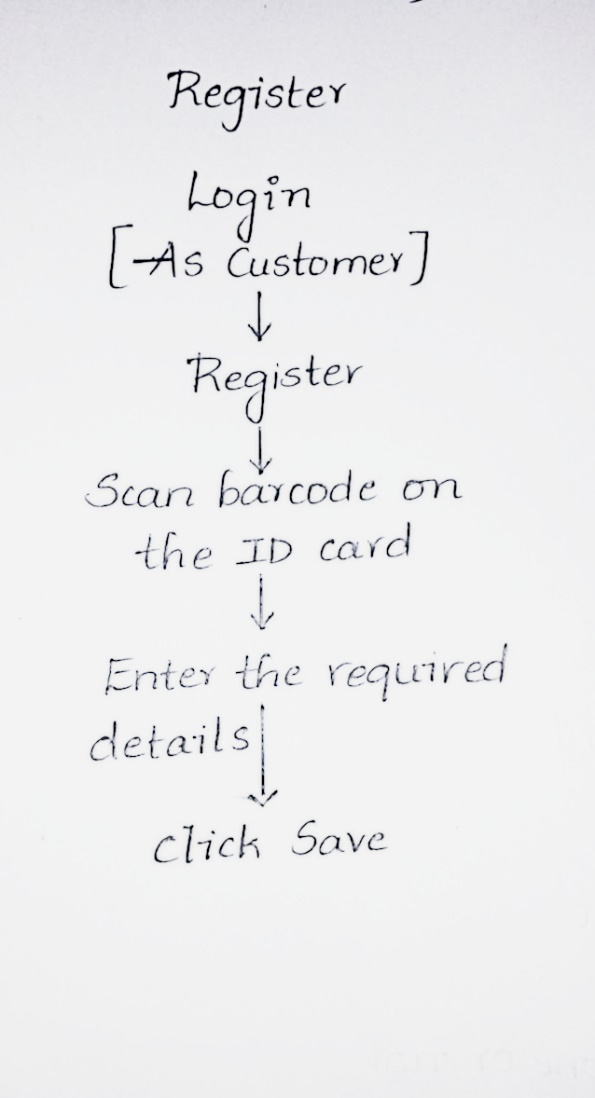 Register
Login
[As Customer]
↓
Register
↓
Scan barcode on
the ID card
↓
Enter the required
details
↓
Click Save